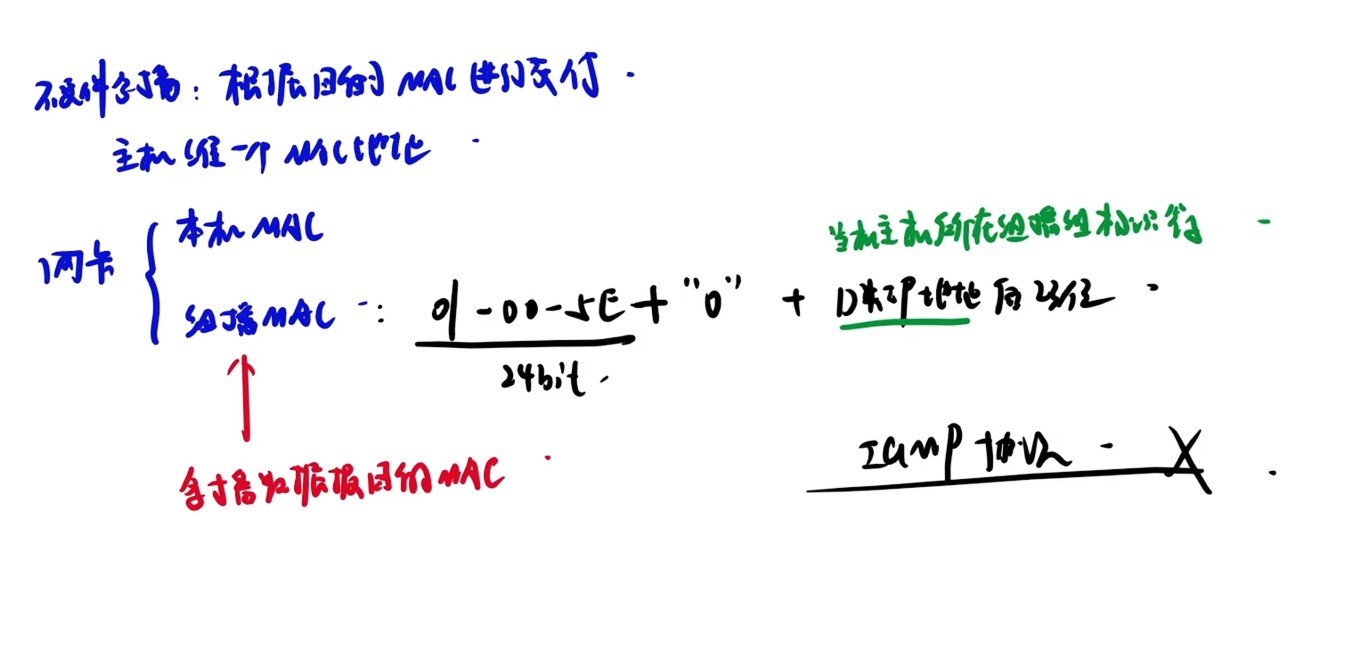 硬件多播：根据目的MAC进行交付.
主机维一个MAC地址
网卡
本机MAC
组播MAC：01-00-5E+"0" + D类IP地址后23位.
24bit.
当前主机所在组播组标识符
多播数据报目的MAC
IGMP协议. X